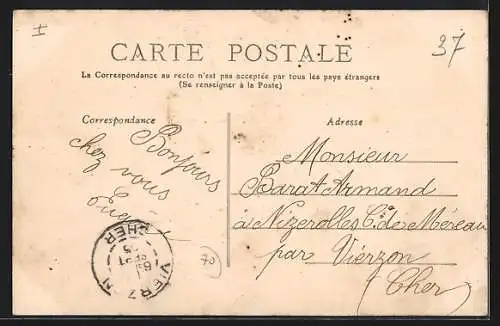 I
37
CARTE POSTALE
La Correspondance au recto n'est pas acceptée par tous les pays étrangers
(Se renseigner à la Poste)
Correspondance
Adresse
Bonjours
chez vous
Monsieur
Barat Armand
à Nizerolles Cne de Méreau
par Vierzon
Cher
VIERZON
CHER
70